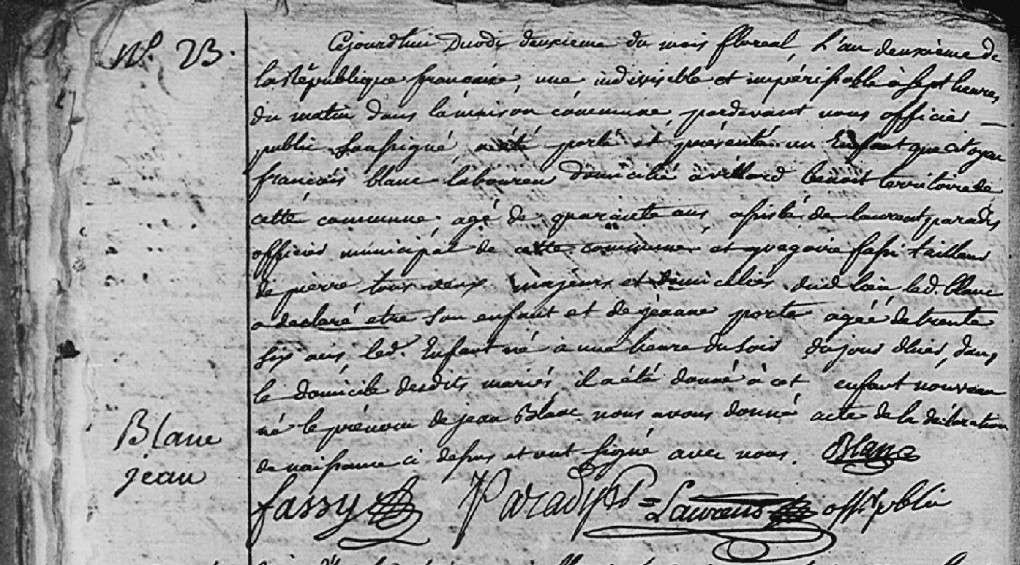 N.º 23.
Cejourdhui Duodi deuxieme du mois floreal, L'an deuxième de
la République française, une indivisible et impérissable à sept heures
du matin dans la maison commune, pardevant nous officier
public soussigné, a été porté et présenté un Enfant que citoyen
françois blanc laboureur domicilié à villard benoit territoire de
cette commune agé de quarante ans assisté de laurent paradis
officier municipal de cette commune et gregoire fassi tailleur
de pierre tous deux majeurs et domiciliés dud. lieu led. blanc
a declaré etre son enfant et de jeanne porte agéé de trente
six ans, led. Enfant né à une heure du soir du jour d'hier, dans
le domicile desdits mariés il a été donné à cet enfant nouveau
né le prénom de jean Blanc nous avons donné acte de la déclaration
de naissance ci dessus et ont signé avec nous. Blanc
Blanc
jean
fassy Paradis Laurans off. public